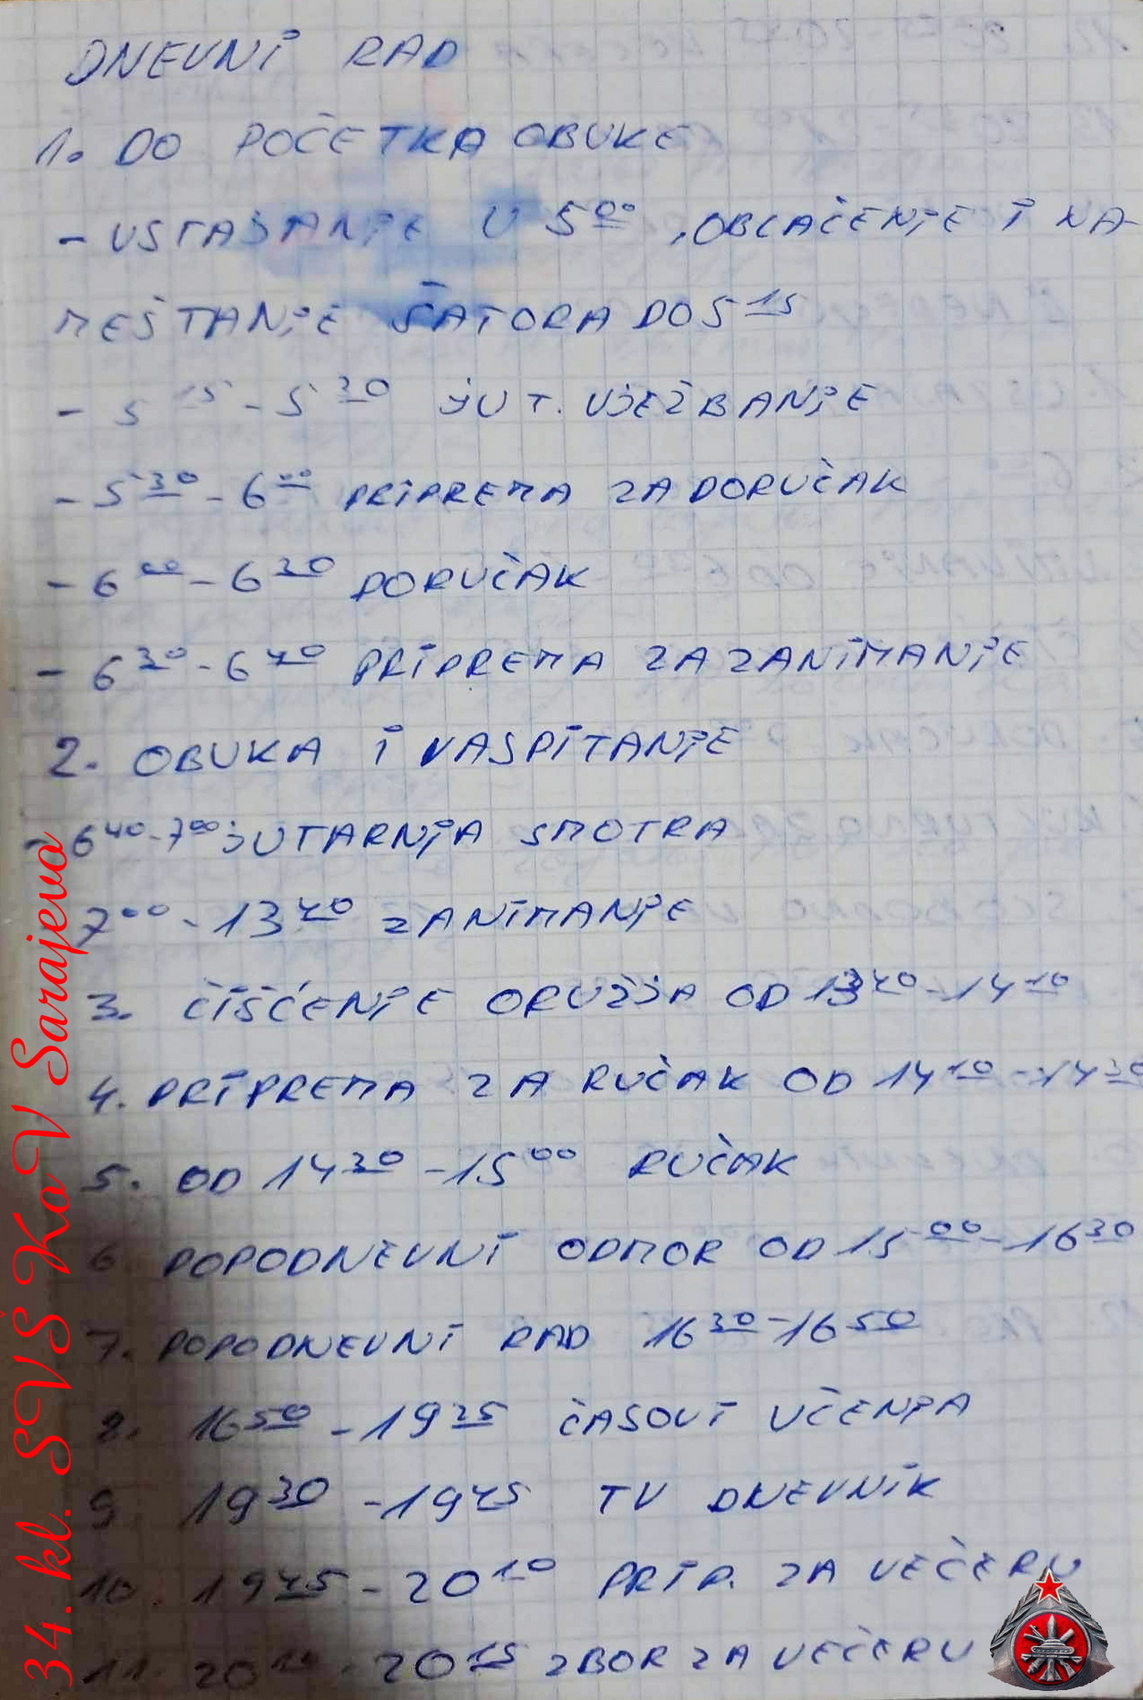 DNEVNI RAD
1. DO POČETKA OBUKE
- USTAJANJE U 5⁰⁰, OBLAČENJE I NA-
MEŠTANJE ŠATORA DO 5¹⁵
- 5¹⁵ - 5³⁰ JUT. VJEŽBANJE
- 5³⁰ - 6⁰⁰ PRIPREMA ZA DORUČAK
- 6⁰⁰ - 6³⁰ DORUČAK
- 6³⁰ - 6⁴⁰ PRIPREMA ZA ZANIMANJE
2. OBUKA I VASPITANJE
- 6⁴⁰ - 7⁰⁰ JUTARNJA SMOTRA
7⁰⁰ - 13⁴⁰ ZANIMANJE
3. ČIŠĆENJE ORUŽJA OD 13⁴⁰ - 14¹⁰
4. PRIPREMA ZA RUČAK OD 14¹⁰ - 14³⁰
5. OD 14³⁰ - 15⁰⁰ RUČAK
6. POPODNEVNI ODMOR OD 15⁰⁰ - 16³⁰
7. POPODNEVNI RAD 16³⁰ - 16⁵⁰
8. 16⁵⁰ - 19²⁵ ČASOVI UČENJA
9. 19³⁰ - 19⁴⁵ TV DNEVNIK
10. 19⁴⁵ - 20¹⁰ PRIP. ZA VEČERU
11. 20¹⁰ - 20¹⁵ ZBOR ZA VEČERU
34. kl. SVŠ KoV Sarajevo